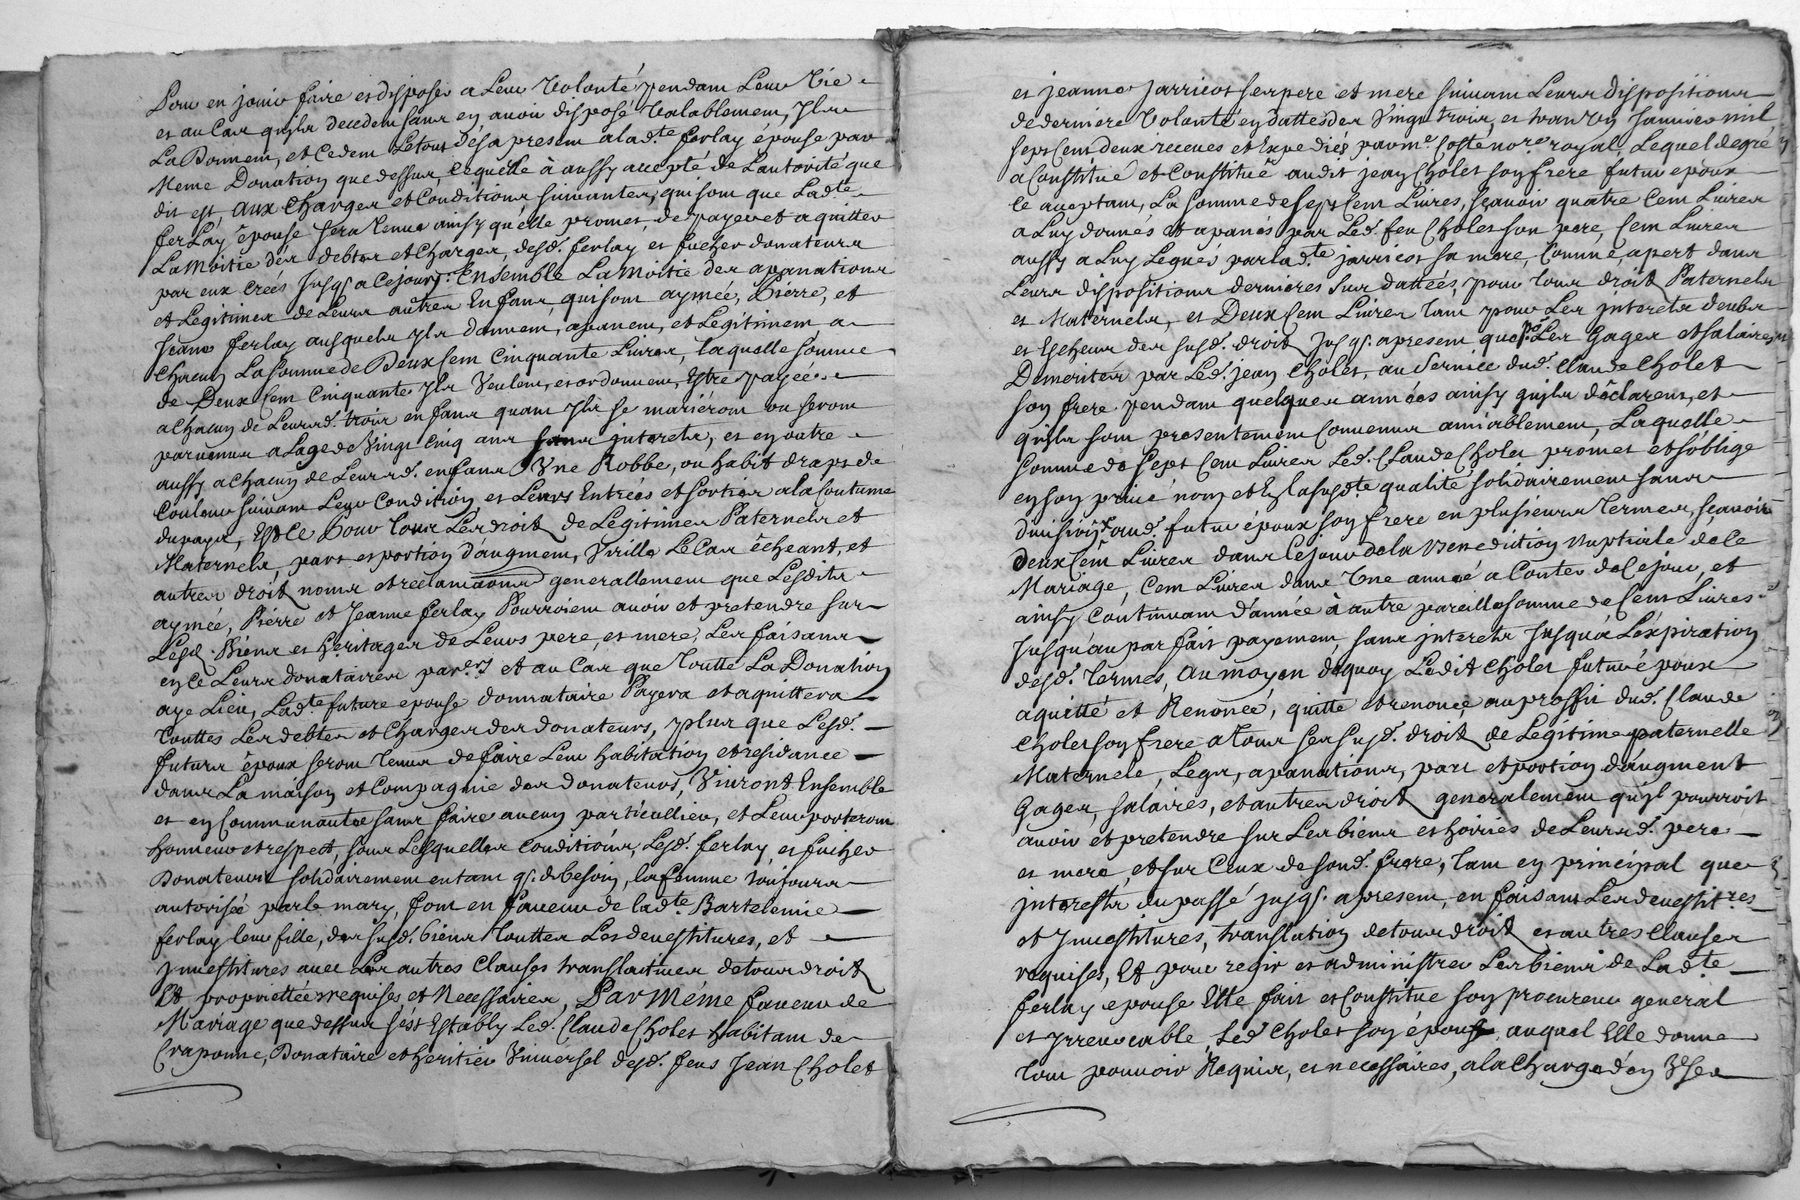 Pour en jouir faire et disposer a Leur Volonté pendant Leur Vie
et au Cas quils decedent sans en avoir disposé Valablement, Ils
La Donnent, et Cedent Le tout des a present a lad.te ferlay épouse par
Meme Donation que dessus, Lequelle à aussy accepté de Lautorité que
dit est, aux Charges et Conditions suivantes, qui sont que Lad.te
ferLay épouse sera tenue ainsy qu'elle promet, de payer et aquitter
La Moitié des debtes et Charges, desd. ferlay et fucher donateurs
par eux creés Jusq. a Cejourd. Ensemble La Moitié des apanations
et Legitimes de Leurs autres Enfans, qui sont aymée, Pierre, et
Jeane ferlay ausquels Ils donnent, apanent, et Legitiment a
Chacun La somme de Deux Cent Cinquante Livres, laquelle somme
de Deux Cent Cinquante Ils Veulent, et ordonnent, Estre payée
a Chacun de Leursd. trois enfans quant Ils se mariéront ou seront
parvenus a Lage de Vingt Cinq ans sans interets, et en outre
aussy a Chacun de Leursd. enfans Une Robbe, ou habit draps de
Couleur suivant Leur Condition et Leurs Entrées et sorties a la Coutume
du pays, Et Ce Pour Tous Les droit de Legitimes Paternels et
Maternels, part et portion d'augment, Virille Le Cas êcheant, et
autres droit noms et reclamations generallement que Lesdits
aymée, Piérre et Jeanne ferlay Pourroient avoir et pretendre sur
Lesd. Biéns et heritages de Leurs pere, et mere, Les faisans
en Ce Leurs donataires par.ers et au Cas que Toutte La Donation
aye Lieu, Lad.te future epouse donnataire Payera et aquittera
Touttes Les debtes et Charges des donateurs, plus que Lesd.
futurs époux seront tenus de faire Leur habitation et residance
dans La maison et Compagnie des donateurs, Vivront Ensemble
et en Communautée sans faire aucun particullier, et Leur porteront
honneur et respect, sous Lesquelles Conditions, Lesd. ferlay, et fucher
Donateurs solidairement en tant q. de besoin, la femme toujours
autorisée par le mary, font en faveur de Lad.te Bartelemie
ferlay leur fille, des susd. biéns Touttes Les devestitures, et
Investitures avec Les autres Clauses translatives de tous droit
Et propriettées requises et Necessaires, Par Méme faveur de
Mariage que dessus s'est Estably Led. Claude Cholet habitant de
Craponne, Donataire et heritier Universel desd. feus Jean Cholet
et jeanne Jarricot ses pere et mere suivant Leurs dispositions
de derniere Volonté en dattes des Vingt trois, et trante Un Janvier mil
sept Cent deux receues et Expediés par m.e Coste no.re royal, Lequel de gré
a Constitué et Constitue audit jean Cholet son frere futur epoux
Ce acceptant, La somme de sept Cent Livres, sçavoir quatre Cent Livres
a Luy donnés et apanés par Led. feu Cholet son pere, Cent Livres
aussy a Luy Legués par lad.te jarricot sa mere, Comme apert dans
Leurs dispositions dernieres sus dattées, pour tous droit Paternels
et Maternels, et Deux Cent Livres tant pour Les Interets deubs
et Escheus des susd. droit Jusq. a present que Les Gages et salaires
Demerités par Led. jean Cholet, au Service dud. Claude Cholet
son frere pendant quelques années ainsy quils dêclarent, et
quils sont presentement Convenus amiablement, Laquelle
somme de sept Cent Livres Led. Claude Cholet promet et s'oblige
en son privé nom et En La susd.te qualité solidairement sans
division aud. futur époux son frere en plusieurs termes, sçavoir
deux Cent Livres dans Le jour de la Benediction nuptiale de Ce
Mariage, Cent Livres dans Une année a Conter de Ce jour, et
ainsy Continuant d'année à autre pareille somme de Cent Livres
Jusqu'au parfait payement, sans interets Jusqu'a L'expiration
desd. termes, Au moyen dequoy Ledit Cholet futur époux
aquitté et Renoncé, quitte et renonce au proffit dud. Claude
Cholet son frere a tous ses susd. droit de Légitime paternelle
Maternele, Legs, apanations, part et portion d'augment
Gages, salaires, et autres droit generalement qu'il pourroit
avoir et pretendre sur Les biens et hoiries de Leursd. pere
et mere, et sur Ceux de sond. frere, tant en principal que
Interests du passé jusq. a present, en faisant Les devestitures
et Investitures, translation de tous droit et autres Clauses
requises, Et pour regir et administrer Les biens de Lad.te
ferlay epouse Elle fait et Constitue son procureur general
et Irrevocable, Led. Cholet son époux auquel Elle donne
tout pouvoir Requis, et necessaires, a la Charge d'en User